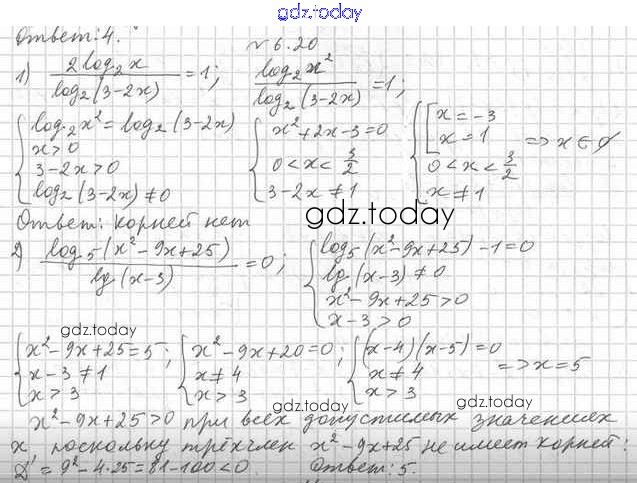 gdz.today
Ответ: 4.
№ 6.20
1) 2log₂x / log₂(3-2x) = 1; log₂x² / log₂(3-2x) = 1;
{ log₂x² = log₂(3-2x) { x²+2x-3=0 { [ x = -3
x>0 x = 1 => x ∈ ∅
3-2x>0 0<x<3/2 0<x<3/2
log₂(3-2x) ≠ 0 3-2x ≠ 1 x ≠ 1
Ответ: корней нет
gdz.today
2) log₅(x²-9x+25) / lg(x-3) = 0; { log₅(x²-9x+25)-1=0
lg(x-3) ≠ 0
x²-9x+25>0
x-3>0
gdz.today
gdz.today
{ x²-9x+25=5; { x²-9x+20=0; { (x-4)(x-5)=0
x-3 ≠ 1 x ≠ 4 x ≠ 4 => x=5
x>3 x>3 x>3
gdz.today
gdz.today
x²-9x+25>0 при всех допустимых значениях
x, поскольку трёхчлен x²-9x+25 не имеет корней:
D = 9²-4·25=81-100<0. Ответ: 5.